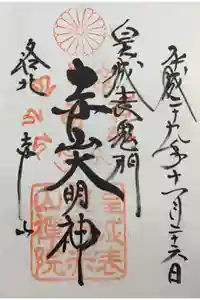 平成二十九年十一月二十六日
皇城表鬼門
赤山大明神
洛北 赤山
皇城表
赤山禅院